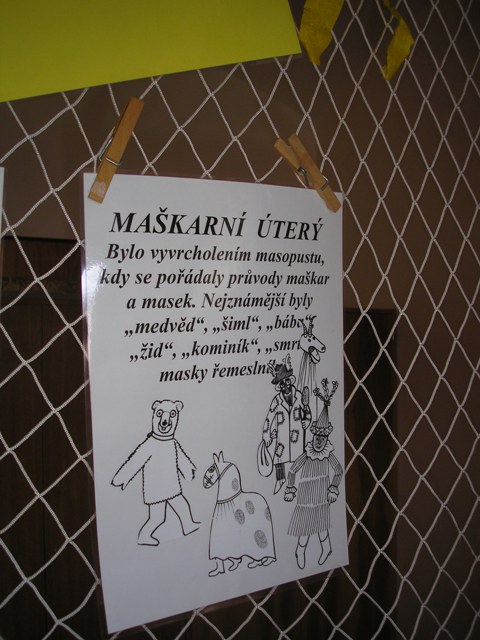 MAŠKARNÍ ÚTERÝ
Bylo vyvrcholením masopustu,
kdy se pořádaly průvody maškar
a masek. Nejznámější byly
„medvěd“, „šiml“, „bába“
„žid“, „kominík“,
masky